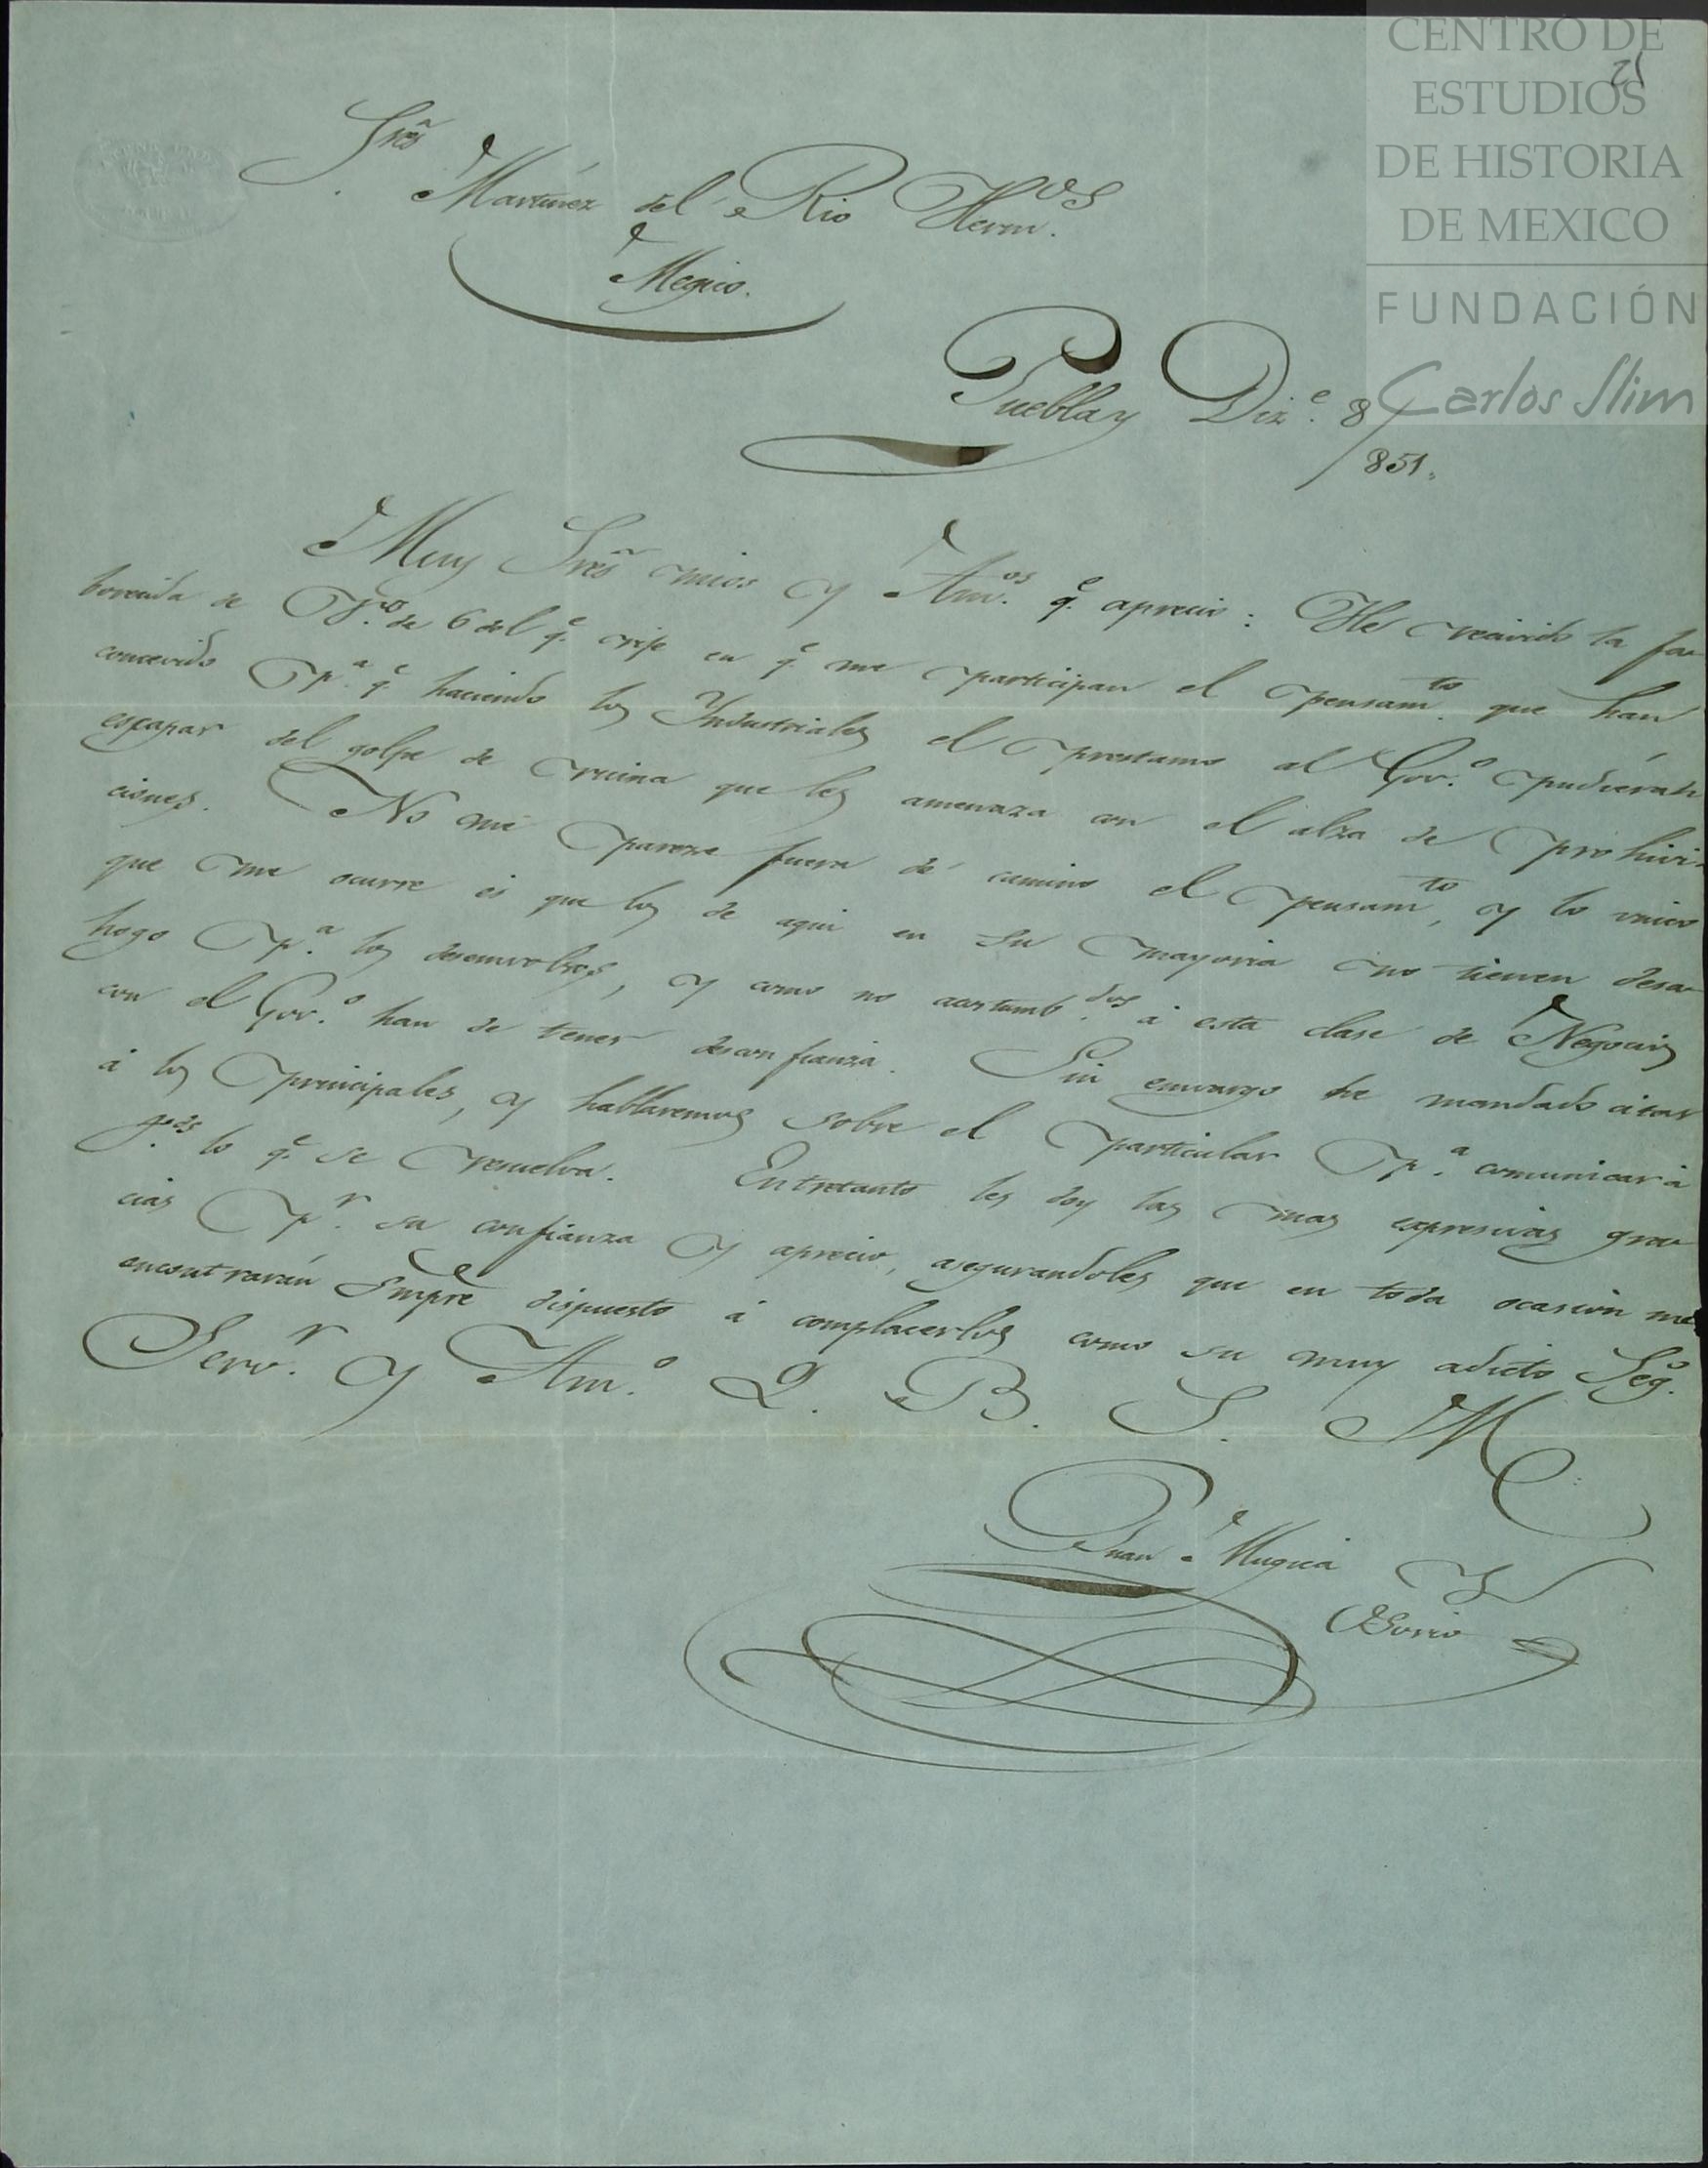 CENTRO DE
ESTUDIOS
DE HISTORIA
DE MEXICO
FUNDACIÓN
Carlos Slim
21
Sres
Martinez del Rio Herm.os
Megico.
Puebla y Diz.e 8/
851.
Muy Sres mios y Am.os q.e aprecio: He recivido la fa-
borecida de V.s de 6 del q.e rije en q.e me participan el pensam.to que han
concevido p.a q.e haciendo los Industriales el prestamo al Gov.o pudieran
escapar del golpe de ruina que les amenaza con el alza de prohivi-
ciones. No me parece fuera de camino el pensam.to, y lo unico
que me ocurre es que los de aqui en su mayoria no tienen desa-
hogo p.a los desembolsos, y como no acostumb.dos á esta clase de Negocios
con el Gov.o han de tener desconfianza. Sin envargo he mandado citar
á los principales, y hablaremos sobre el particular p.a comunicar á
V.des lo q.e se resuelva. Entretanto les doy las mas expresivas gra-
cias p.r su confianza y aprecio, asegurandoles que en toda ocasion me
encontrarán Smpre dispuesto á complacerlos como su muy adicto Seg.o
Serv.r y Am.o Q. B. S. M.
Juan Mugica y
Osorio